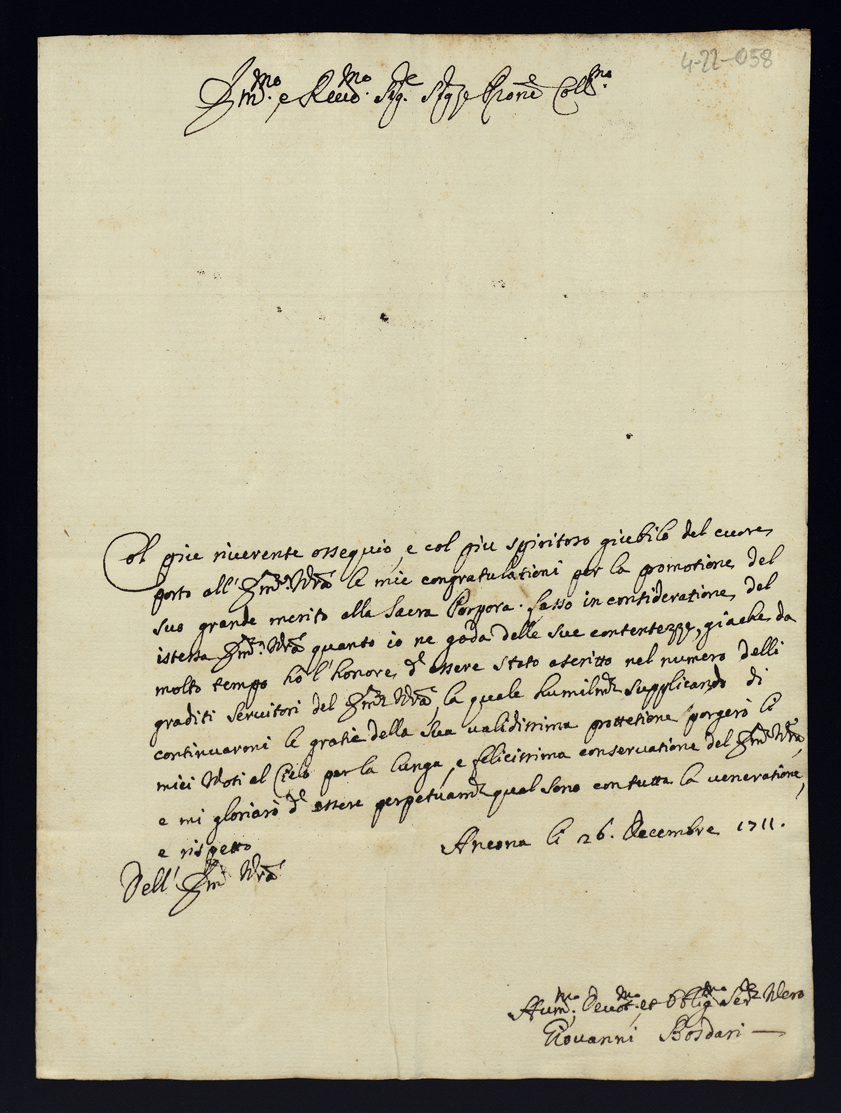 4-22-058
Em.mo e Reu.mo Sig.re Sig.re e Prone Coll.mo
Col piu riuerente ossequio, e col piu spiritoso giubilo del cuore
porto all'Em.za Vra le mie congratulationi per la promotione del
suo grande merito alla Sacra Porpora. Lasso in consideratione del
istessa Em.za Vra quanto io ne goda delle sue contentezze, giache da
molto tempo hò l'honore d'essere stato ascritto nel numero delli
graditi seruitori del Em.za Vra, la quale humilm.te supplicando di
continuarmi le gratie della sua validissima prottetione porgerò li
miei Voti al Cielo per la lunga, e felicissima conseruatione del Em.za Vra,
e mi gloriarò d'essere perpetuam.te qual sono con tutta la veneratione,
e rispetto
Ancona li 26. Decembre 1711.
Dell' Em.za Vra
Hum.mo Deuot.mo et Oblig.mo Ser.re Vero
Giouanni Bosdari